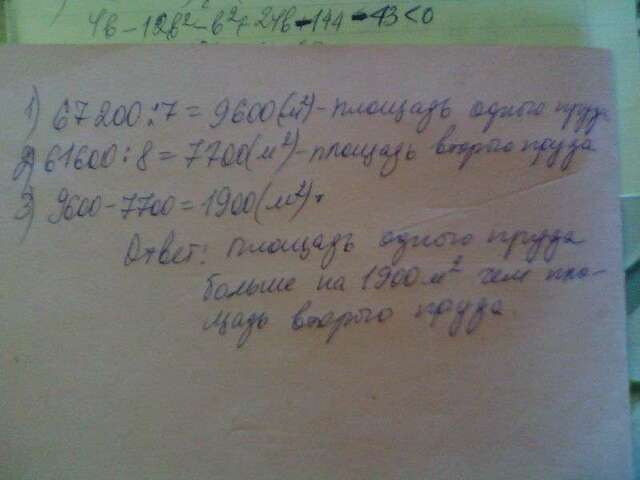 4в-12в²-в²+24в-144-43<0
1) 67200:7=9600(м²)-площадь одного пруда
2) 61600:8=7700(м²)-площадь второго пруда
3) 9600-7700=1900(м²).
Ответ: площадь одного пруда
больше на 1900 м² чем пло-
щадь второго пруда.